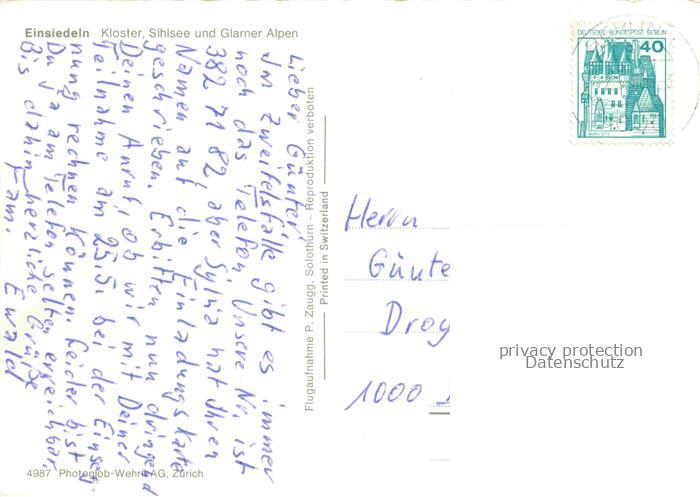 Einsiedeln Kloster, Sihlsee und Glarner Alpen
Lieber Günter,
im Zweifelsfalle gibt es immer
noch das Telefon. Unsere Nr. ist
382 71 82, aber Sylvia hat Ihren
Namen auf die Einladungskarte
geschrieben. Erbitten nun dringend
Deinen Anruf, ob wir mit Deiner
Teilnahme am 25.5. bei der Einseg-
nung rechnen können. Leider bist
Du ja am Telefon selten erreichbar.
Bis dahin herzliche Grüße
Fam. Ewald
4987 Photoglob-Wehrli AG, Zürich
Flugaufnahme P. Zaugg, Solothurn – Reproduktion verboten
Printed in Switzerland
DEUTSCHE BUNDESPOST BERLIN
40
BURG ELTZ
BERLIN
Herrn
Günte
Drog
1000
privacy protection
Datenschutz